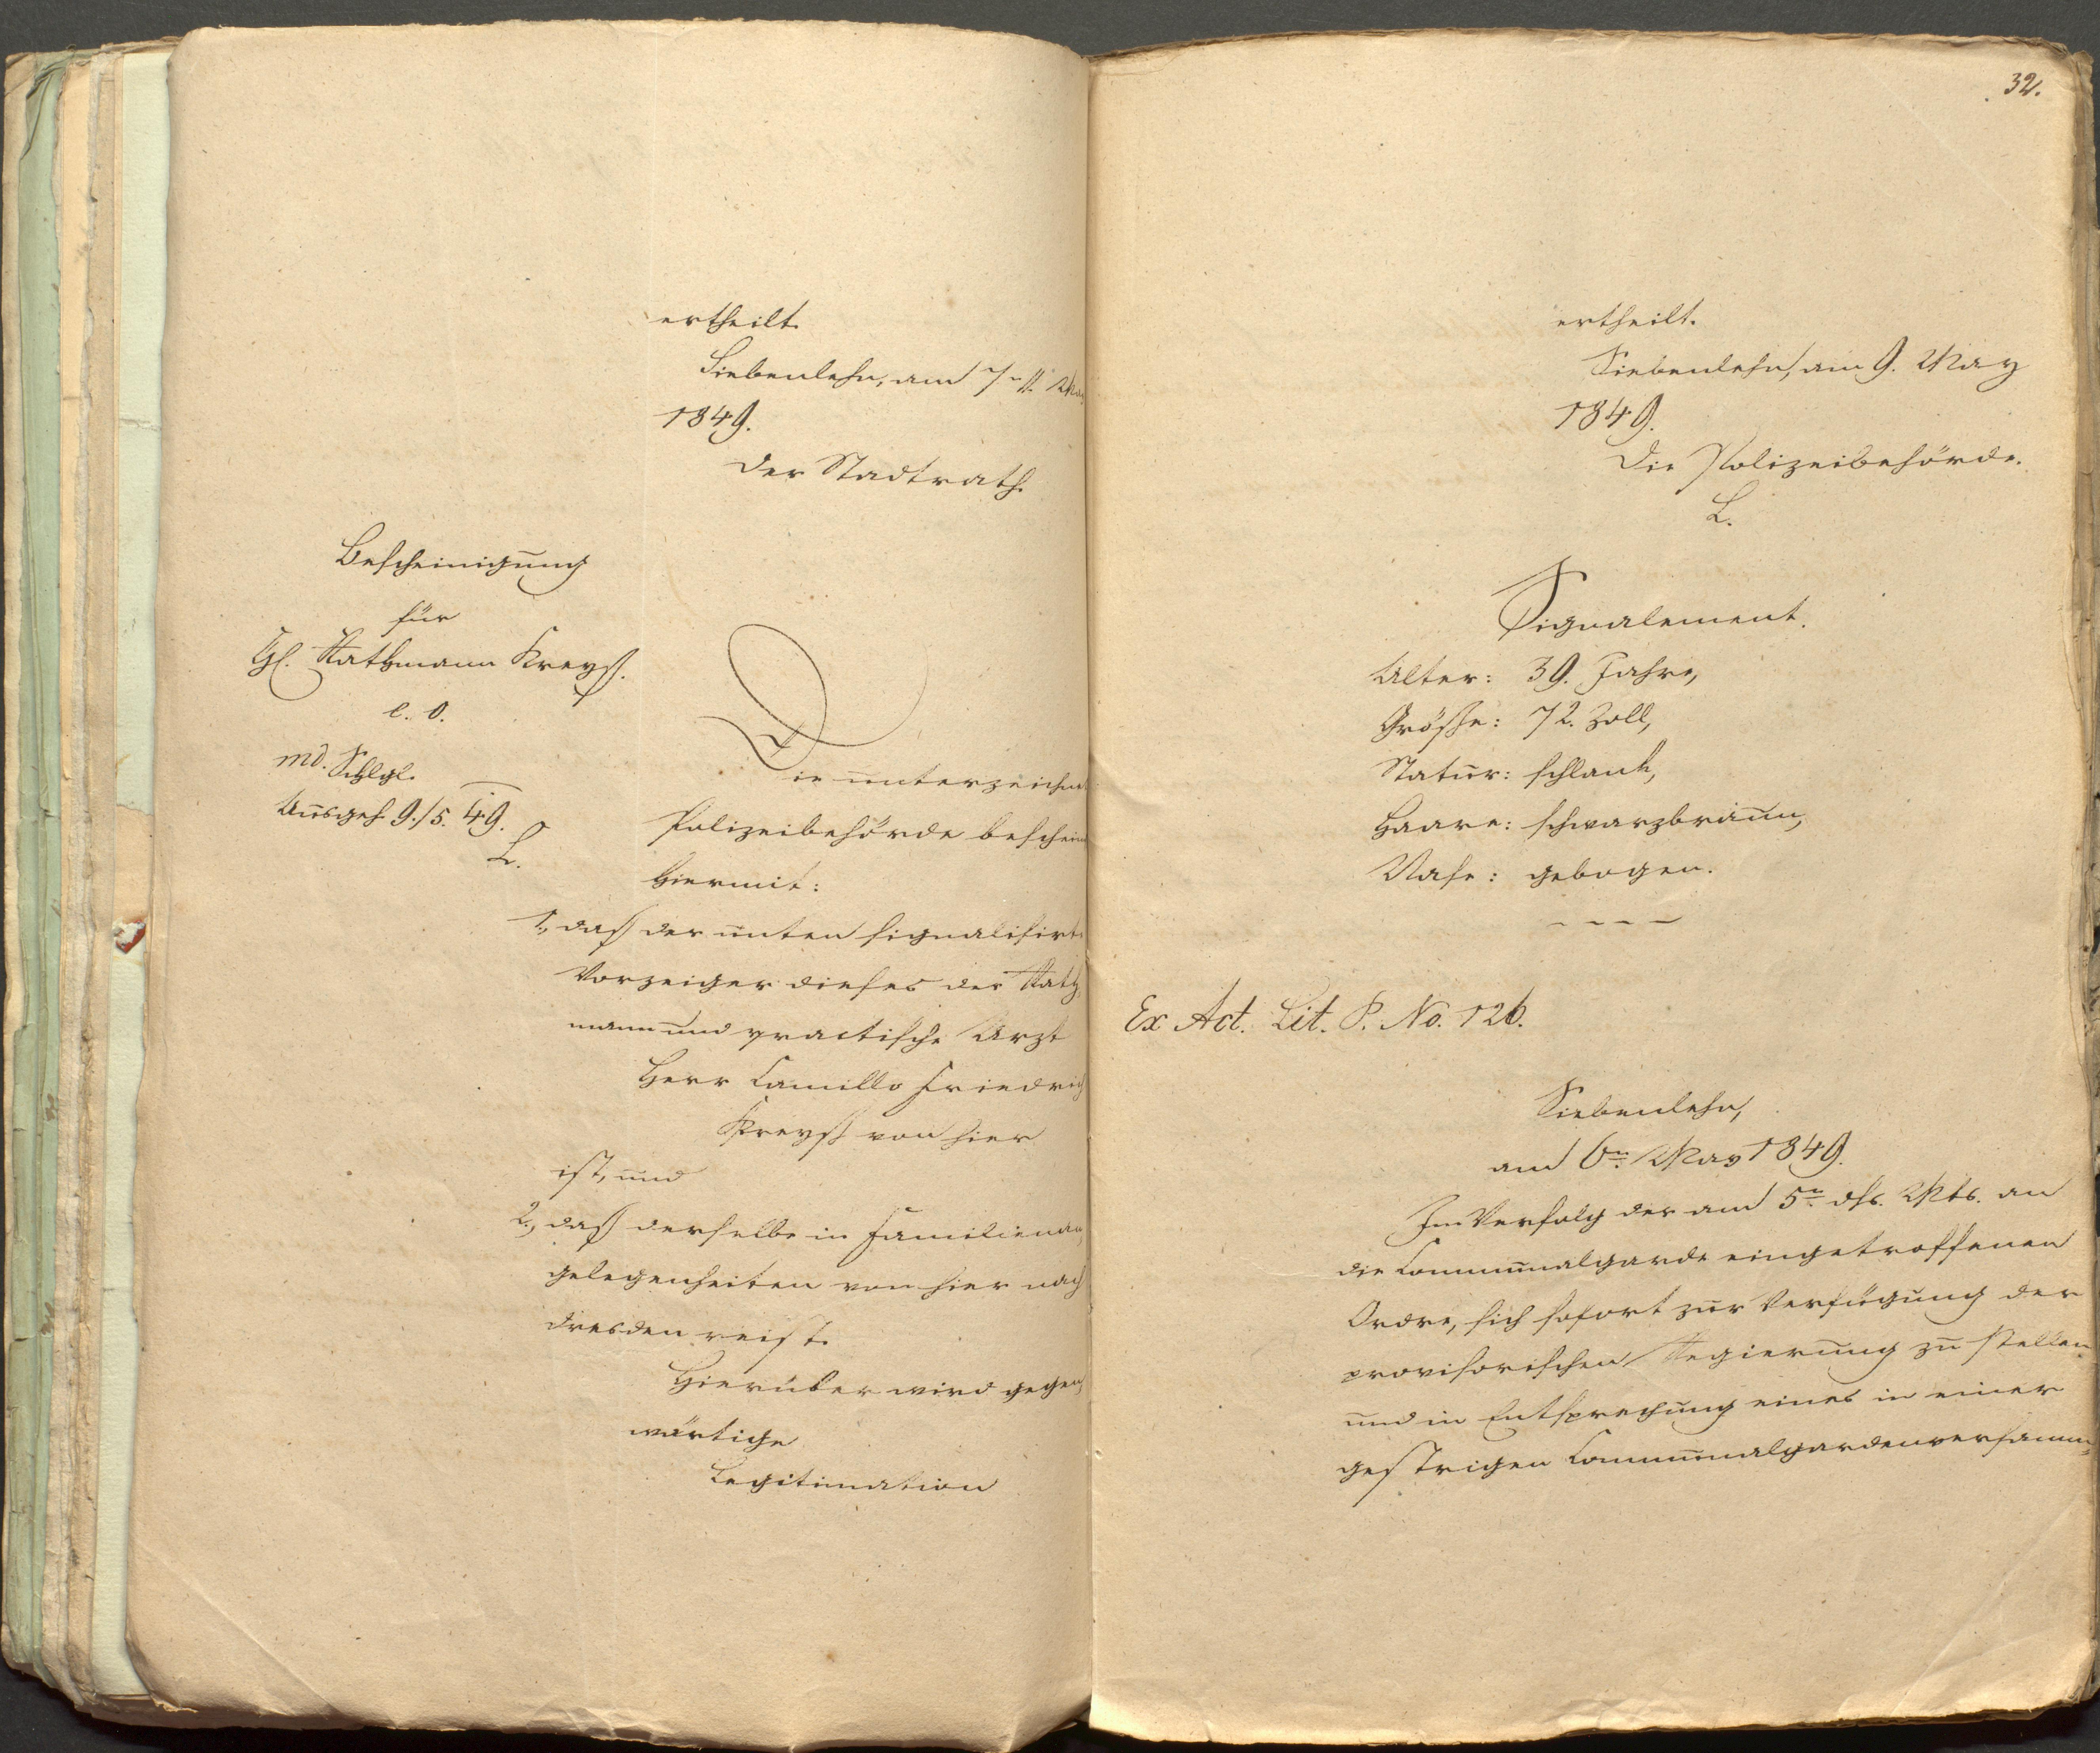 ertheilt.
Siebenlehn, am 7. Ma
1849.
Der Stadtrath.
Bescheinigung
für
H. Rathmann Kreyß.
e. o.
md. Schlgl.
Ausgef. 9./5. 49.
L.
Die unterzeichnet
Polizeibehörde beschein
hiermit:
1., daß der unten signalisirte
Vorzeiger dieses der Rath,
mann und practische Arzt
Herr Camillo Friedrich
Kreyß von hier
ist, und
2., daß derselbe in Familienan,
gelegenheiten von hier nach
Dresden reist.
Hierüber wird gegen,
wärtige
Legitimation
32.
ertheilt.
Siebenlehn, am 9. May
1849.
Die Polizeibehörde.
L.
Signalement.
Alter: 39. Jahre,
Größe: 72. Zoll,
Statur: schlank,
Haare: schwarzbraun,
Nase: gebogen.
Ex Act. Lit. P. No. 126.
Siebenlehn,
am 6n May 1849.
Im Verfolg der am 5n dss. Mts. an
die Communalgarde eingetroffenen
Ordre, sich sofort zur Verfügung der
provisorischen Regierung zu stellen
und in Entsprechung eines in einer
gestrigen Communalgardenversamm=